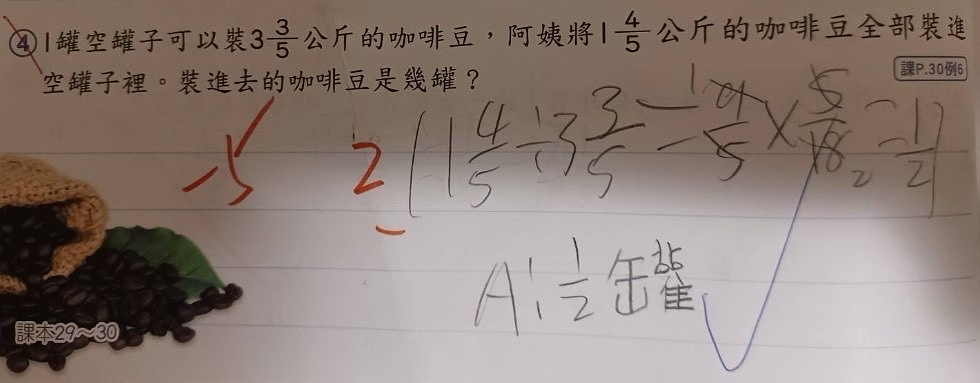 ④ 1罐空罐子可以裝3 3/5 公斤的咖啡豆，阿姨將1 4/5 公斤的咖啡豆全部裝進
空罐子裡。裝進去的咖啡豆是幾罐？
課P.30例6
-5 2 (1 4/5 ÷ 3 3/5 = 9/5 × 5/18 = 1/2)
A: 1/2 罐
課本29～30